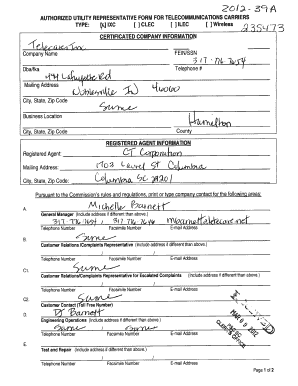 2012-39A
AUTHORIZED UTILITY REPRESENTATIVE FORM FOR TELECOMMUNICATIONS CARRIERS
TYPE: [x] IXC [ ] CLEC [ ] ILEC [ ] Wireless
235473
CERTIFICATED COMPANY INFORMATION
Company Name FEIN/SSN
317-776-7654
Dba/fka Telephone #
Lafayette Rd
Mailing Address
Noblesville IN 46060
City, State, Zip Code
Same
Business Location
Hamilton
City, State, Zip Code County
REGISTERED AGENT INFORMATION
Registered Agent: CT Corporation
Mailing Address: 1703 Laurel St Columbia
City, State, Zip Code: Columbia SC 29201
Pursuant to the Commission's rules and regulations, print or type company contact for the following areas:
A. Michelle Barnett
General Manager (Include address if different than above.)
317-776-7654
Telephone Number Facsimile Number E-mail Address
B. Same
Customer Relations/Complaints Representative (Include address if different than above.)
Telephone Number Facsimile Number E-mail Address
C1. Same
Customer Relations/Complaints Representative for Escalated Complaints (Include address if different than above.)
Telephone Number Facsimile Number E-mail Address
C2. Same
Customer Contact (Toll Free Number)
D. DJ Barnett
Engineering Operations (Include address if different than above.)
Same Same
Telephone Number Facsimile Number E-mail Address
E.
Test and Repair (Include address if different than above.)
Telephone Number Facsimile Number E-mail Address
Page 1 of 2